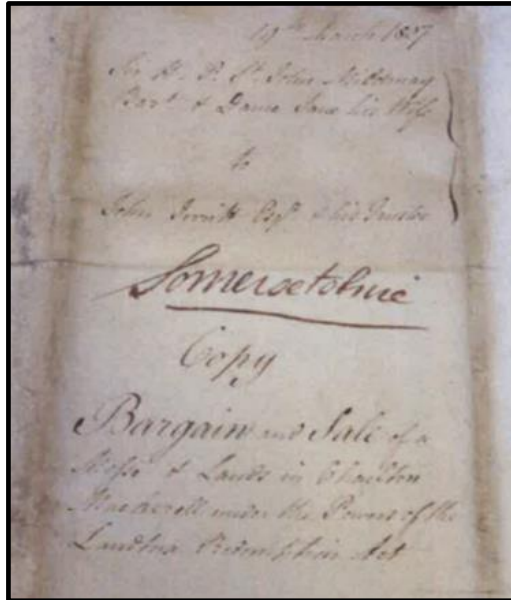 19th March 1807
Sir H. P. St. John Mildmay
Bart. & Dame Jane his Wife
to
John Esqr. & his Trustee
Somersetshire
Copy
Bargain and Sale of a
Messe & Lands in Charlton
Mackerell under the Powers of the
Landtax Redemption Act